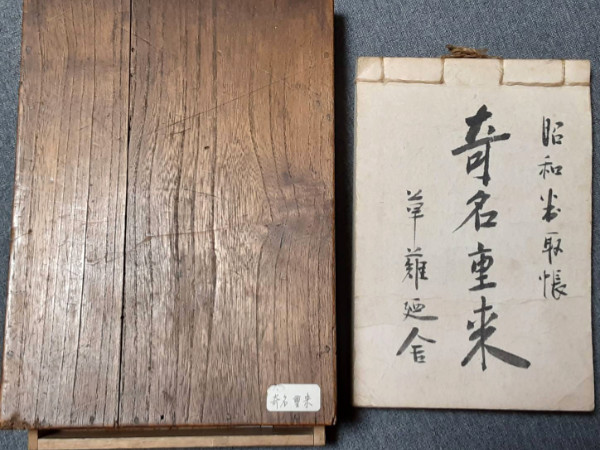 昭和 取帳
奇名重来
草薙廼舎
奇名重来